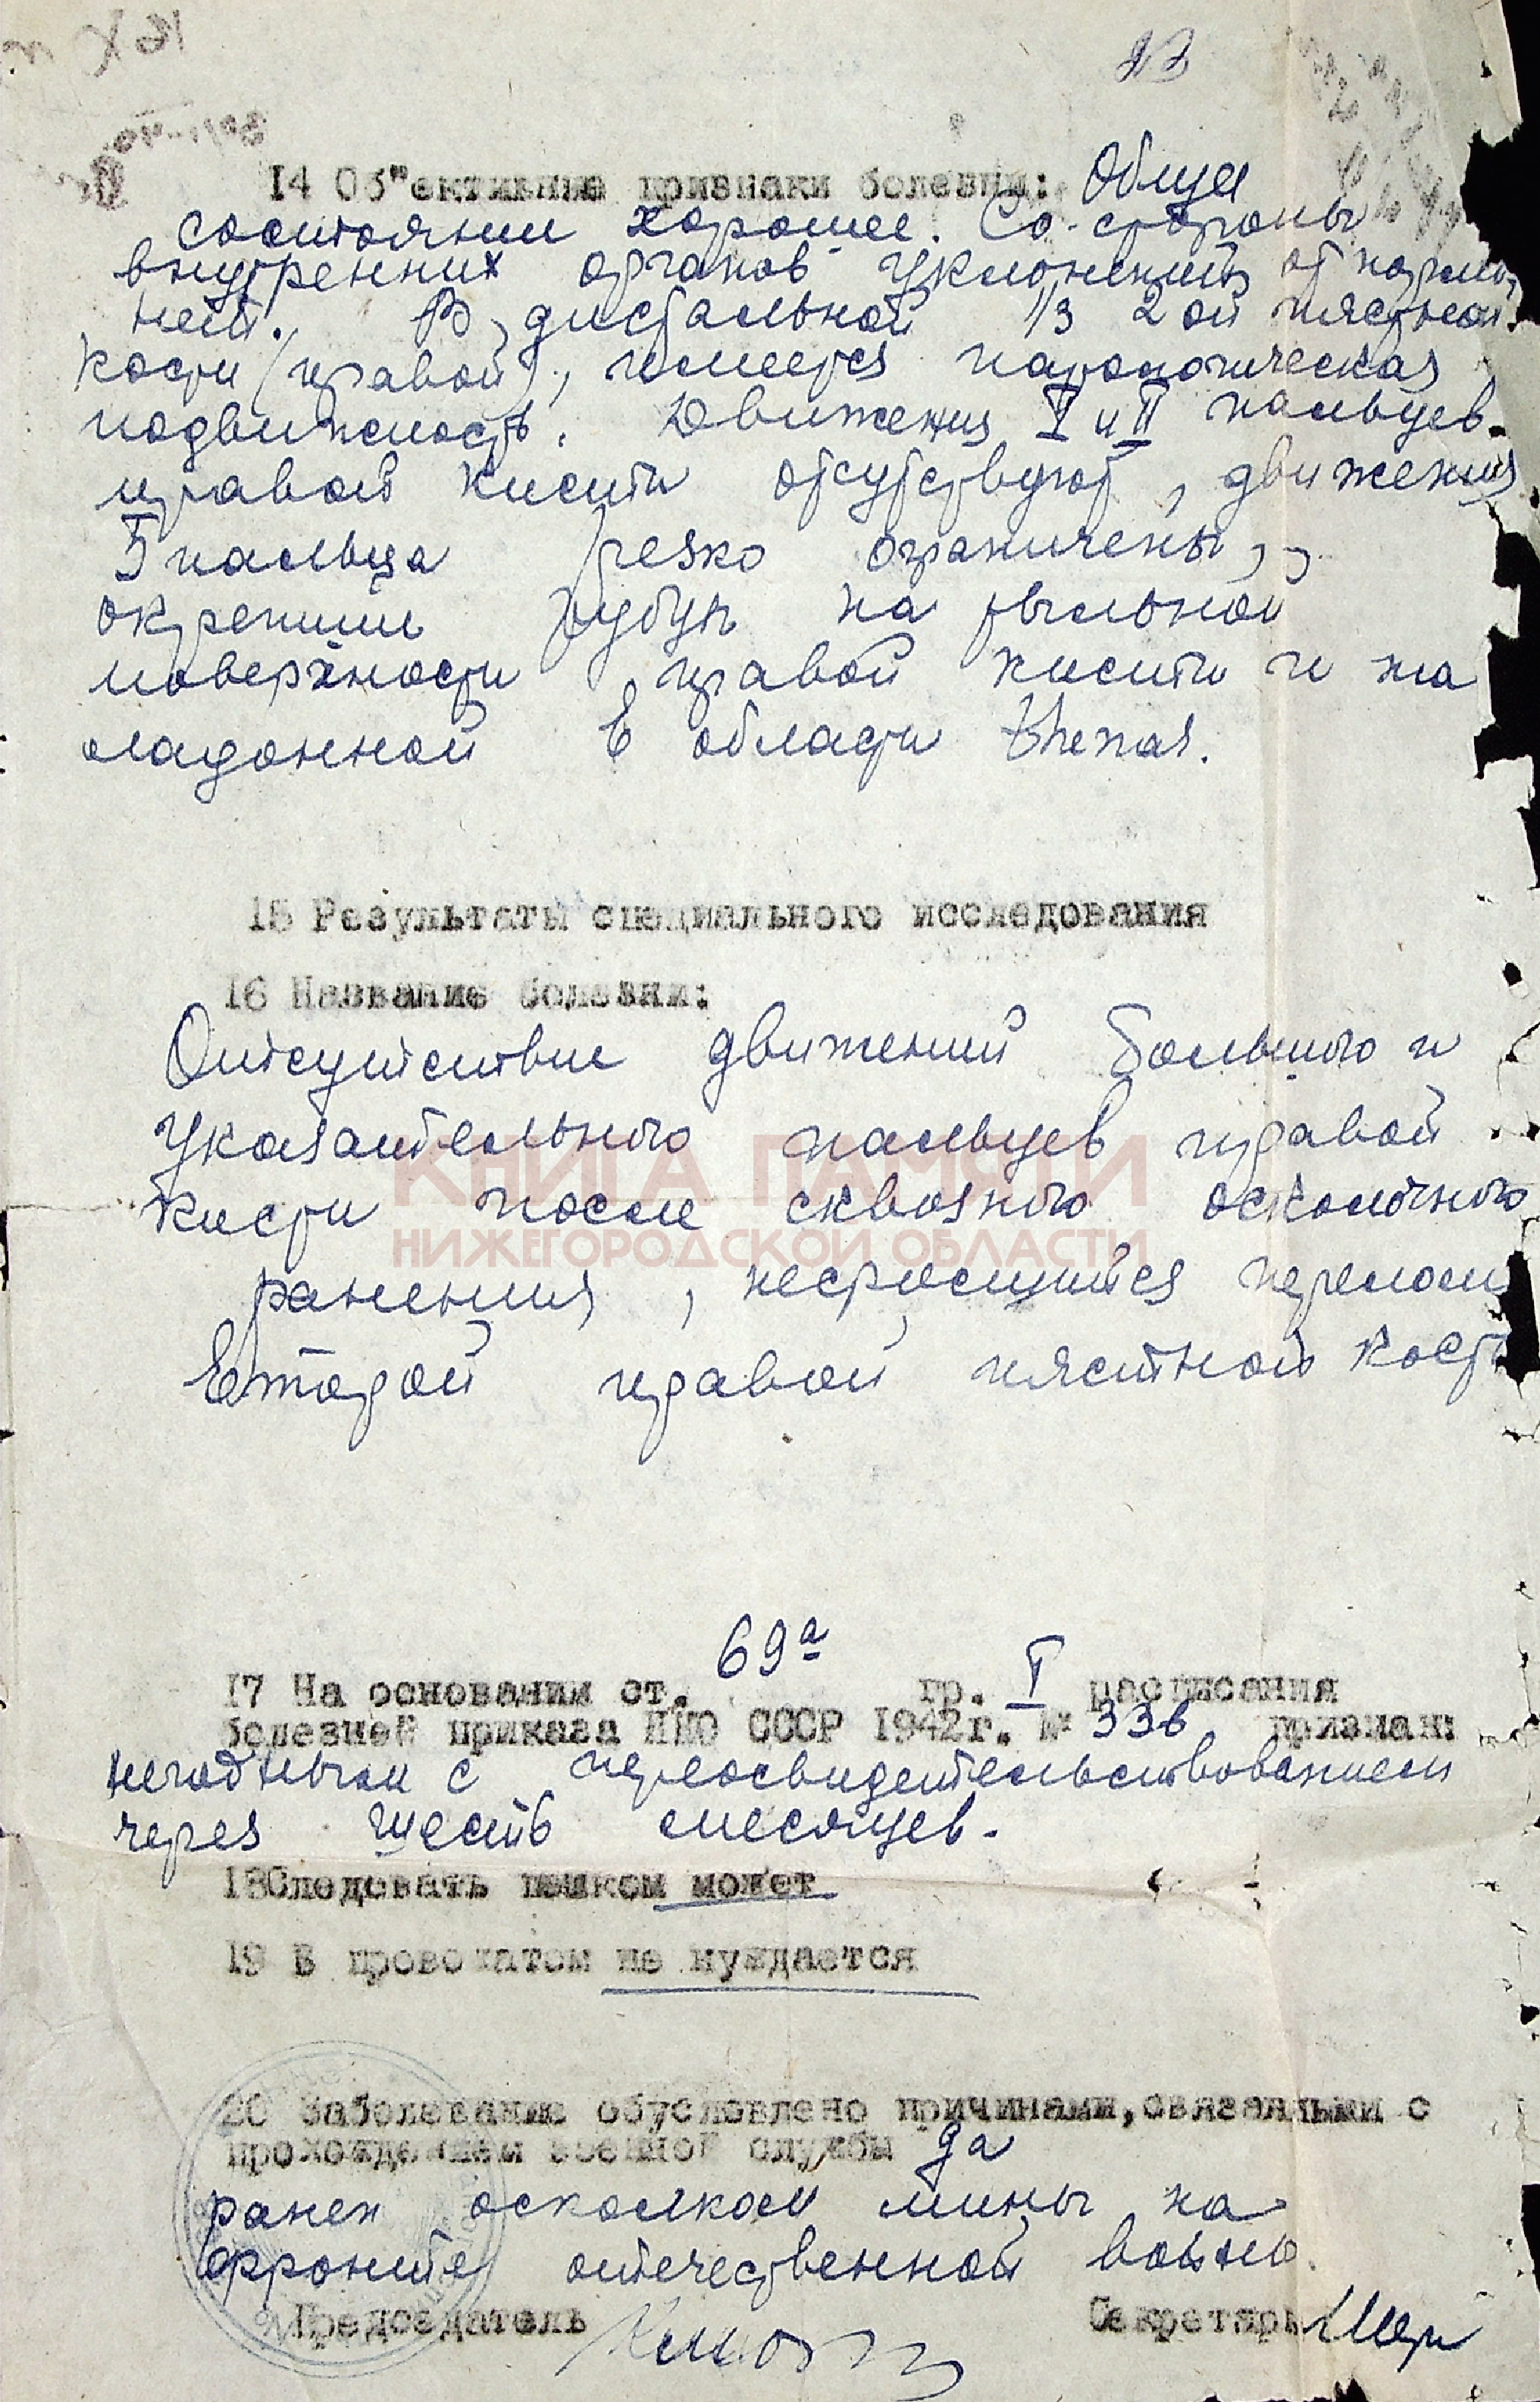 14 Об"ективные признаки болезни: Общее
состояние хорошее. Со стороны
внутренних органов уклонений от нормы
нет. В дистальной 1/3 2ой пястной
кости (правой), имеется патологическая
подвижность. Движения I и II пальцев
правой кисти отсутствуют, движения
5 пальца резко ограничены,
окрепший рубец на тыльной
поверхности правой кисти и на
ладонной в области thenar.
15 Результаты специального исследования
16 Название болезни:
Отсутствие движений большого и
указательного пальцев правой
КНИГА ПАМЯТИ
кисти после сквозного осколочного
НИЖЕГОРОДСКОЙ ОБЛАСТИ
ранения, несросшийся перелом
второй правой пястной кости
17 На основании ст. 69а гр. I расписания
болезней приказа НКО СССР 1942г. № 336 признан:
негодным с переосвидетельствованием
через шесть месяцев.
18 Следовать пешком может
19 В провожатом не нуждается
20 Заболевание обусловлено причинами, связанными с
прохождением военной службы да
ранен осколком мины на
фронте отечественной войны.
Председатель Секретарь